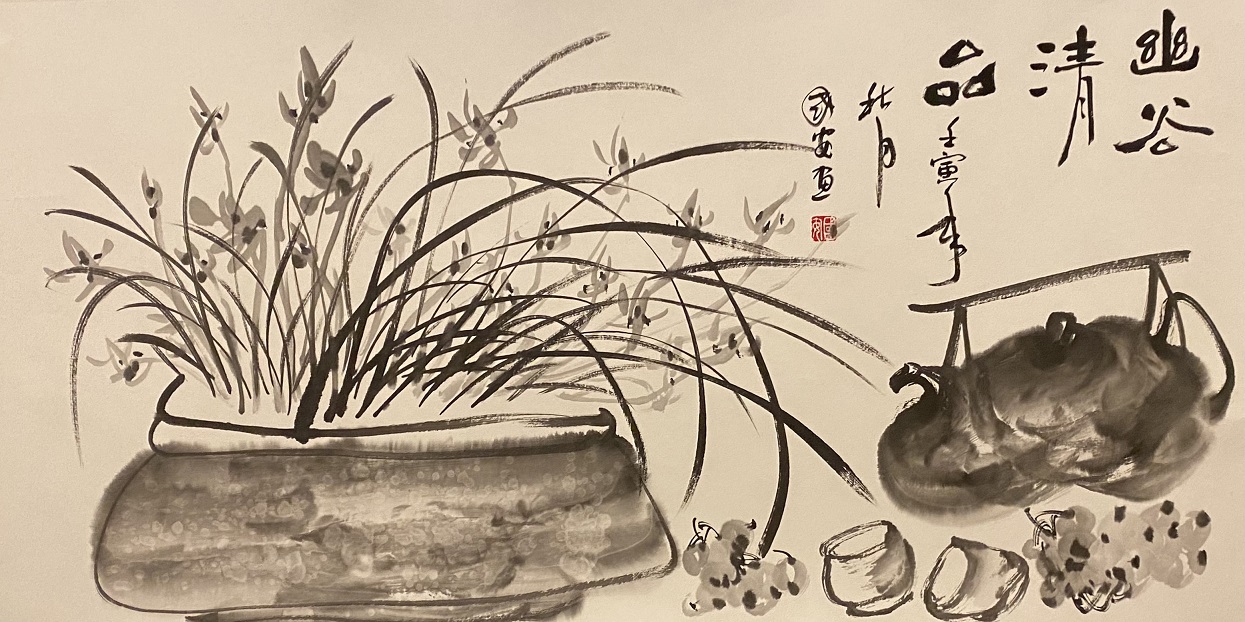 幽谷
清
品壬寅年
秋月
國安画